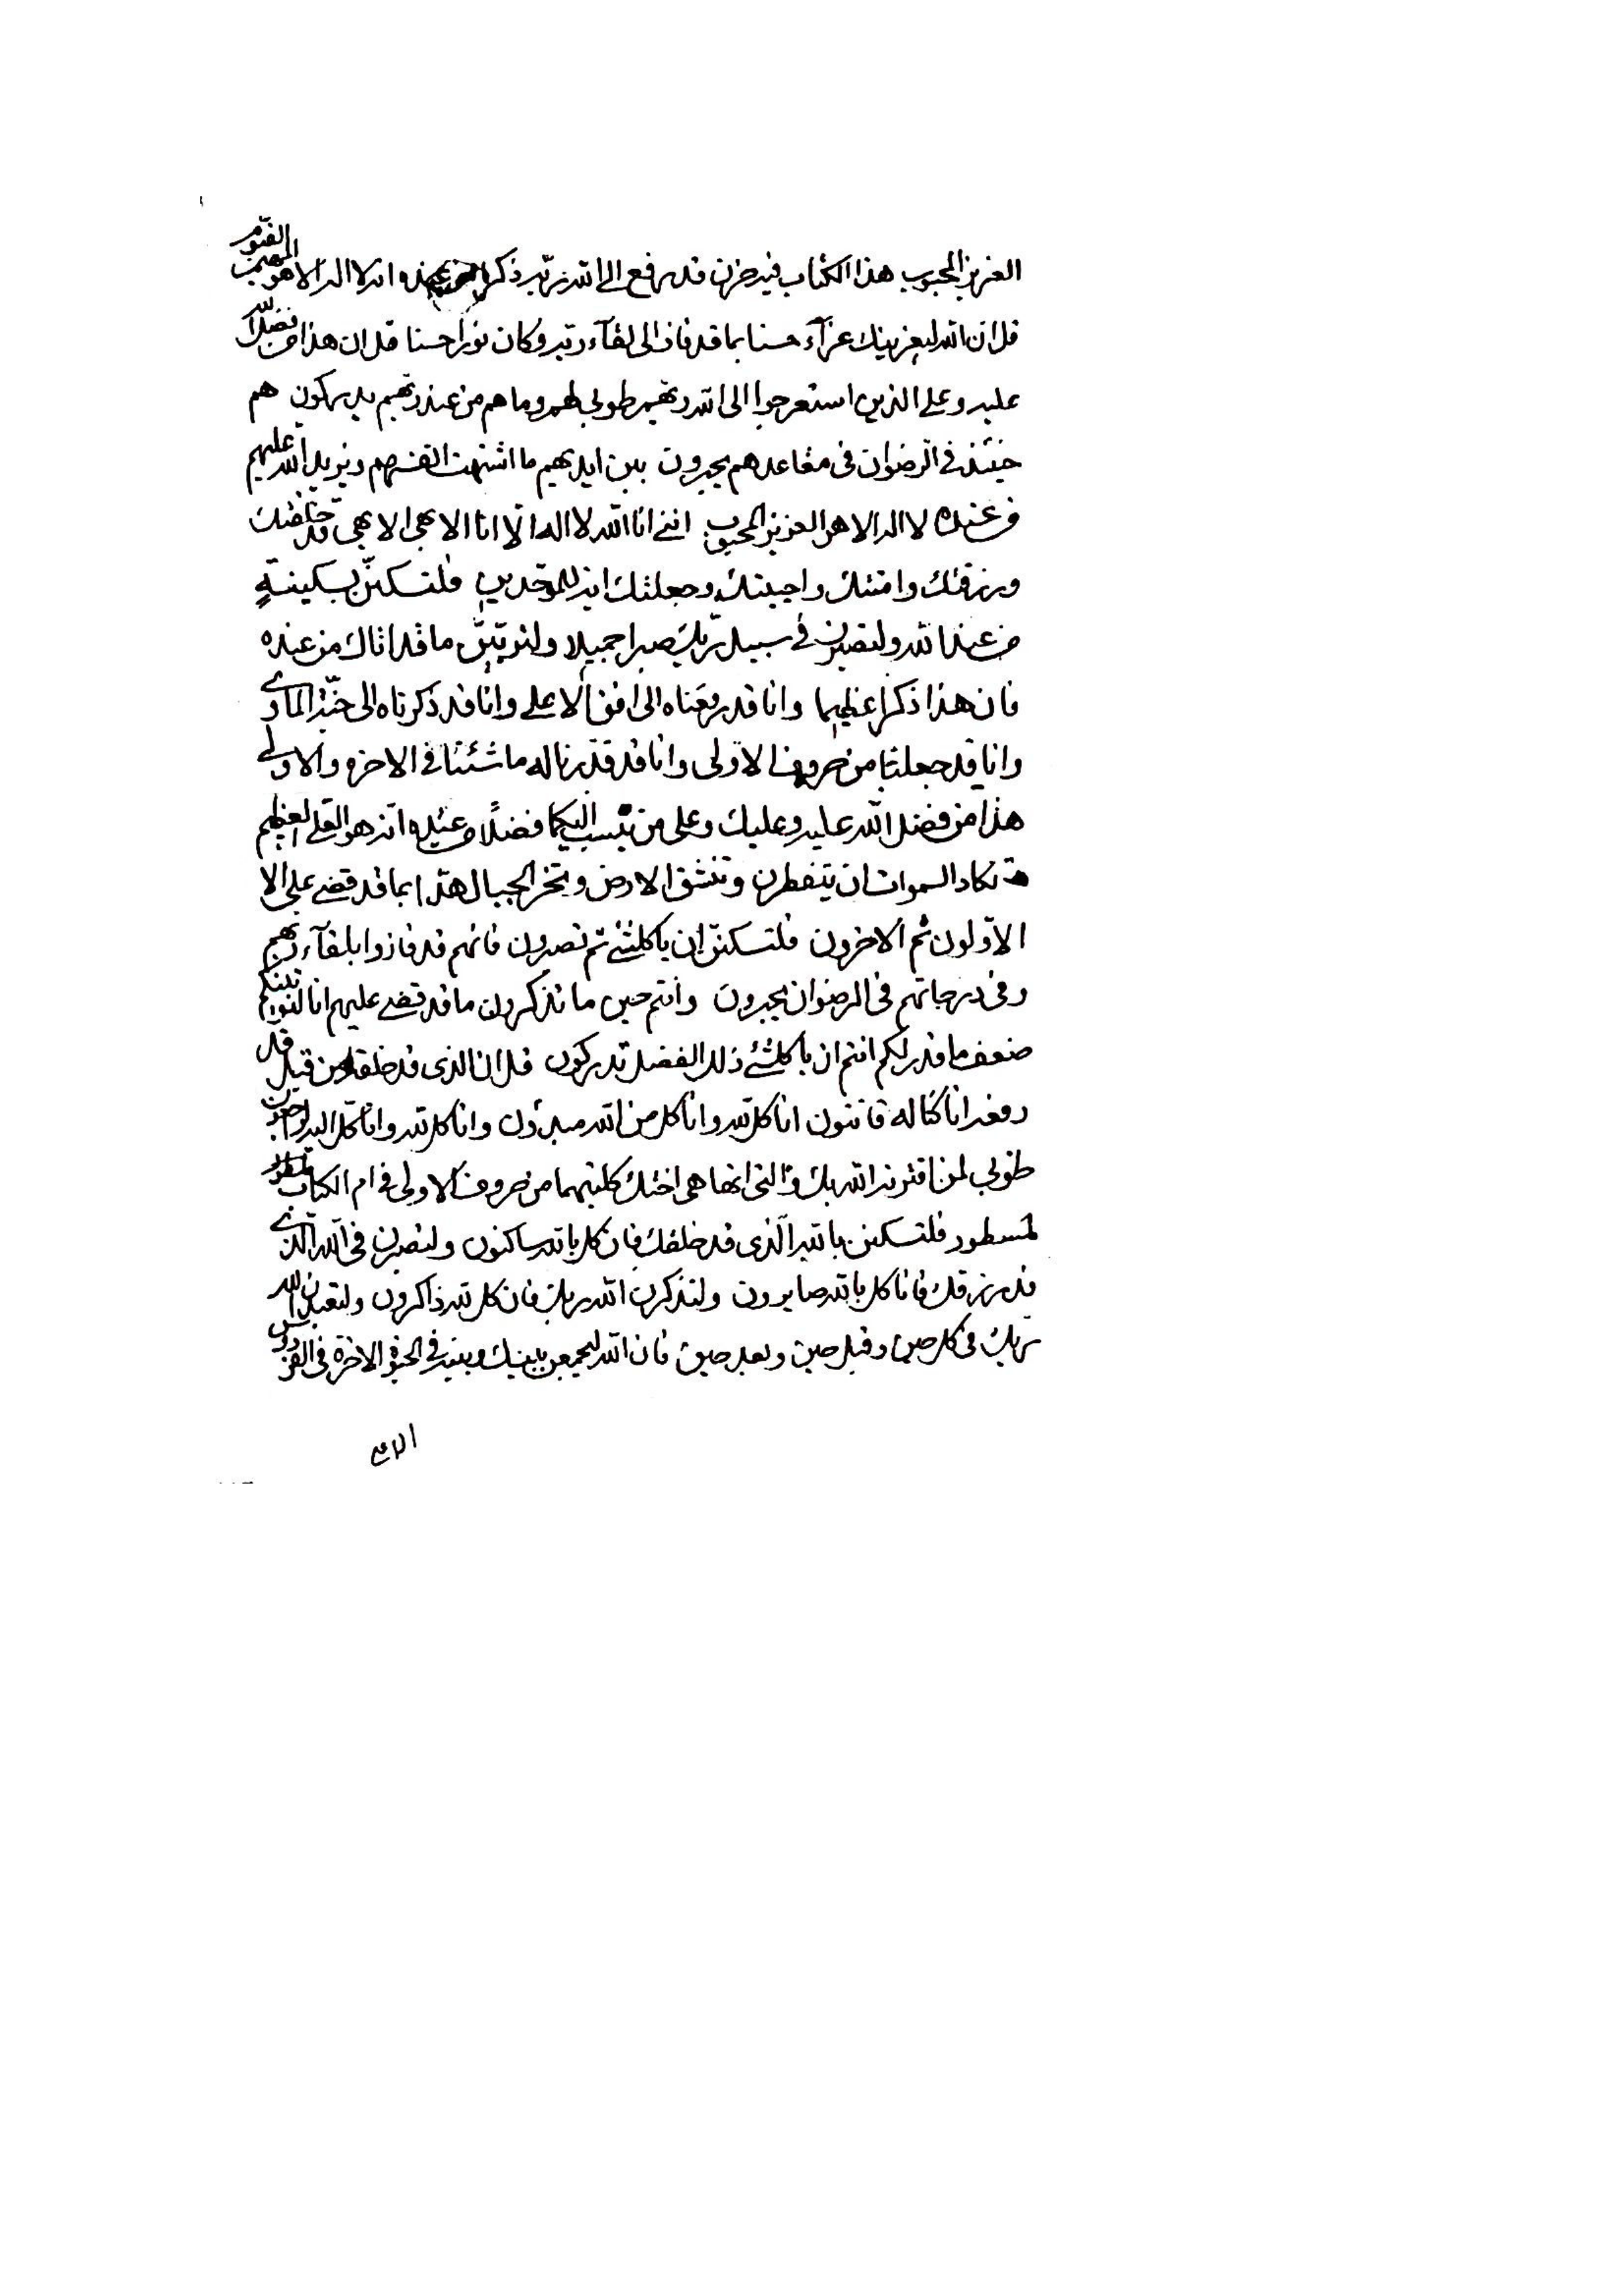 العزيز المحبوب هذا الكتاب فيه حزن قد رفع الى الله ربه ذكرا من عنده انه لا اله الا هو المهيمن القيوم
قل ان الله ليعزينك عزآء حسنا بما قد فاز الى لقآء ربه وكان نورا حسنا قل ان هذا من فضل الله
عليه وعلى الذين استعرجوا الى الله ربهم طوبى لهم وما هم من عند ربهم يدركون هم
حينئذ في الرضوان في مقاعدهم يحبرون بين ايديهم ما اشتهت انفسهم ويزيد الله عليهم
من عنده لا اله الا هو العزيز المحبوب انني انا الله لا اله الا انا الابهى الابهى قد خلقتك
ورزقتك وامتك واحييتك وجعلتك اية للموحدين فلتسكنن بسكينة
من عند الله ولتصبرن في سبيل ربك صبرا جميلا ولتؤتين ما قد اتاك من عنده
فان هذا ذكرا عظيما وانا قد رفعناه الى افق الاعلى وانا قد ذكرناه الى جنة الماوى
وانا قد جعلنا من حروف الاولى وانا قد قدرنا له ما شئنا في الاخرة والاولى
هذا من فضل الله عليه وعليك وعلى من ينسب اليكما فضلا من عنده انه هو العلي العظيم
تكاد السموات ان يتفطرن وتنشق الارض وتخر الجبال هدا بما قد قضى على الا
الاولون ثم الاخرون فلتسكنن ان يا كلشئ ثم تصبرون فانهم قد فازوا بلقآء ربهم
وفي درجاتهم في الرضوان يحبرون وانتم حين ما تذكرون ما قد قضى عليهم انا لنؤتينكم
ضعف ما قدر لكم انتم ان يا كلشئ ذلك الفضل تدركون قل ان الذى قد خلقه من قبل قد
رفعه انا كنا له قانتون انا كل لله وانا كل من الله مبدؤن وانا كل لله وانا كل اليه لراجعون
طوبى لمن اقترنه الله بك والتى انها هى اختك كلتيهما من حروف الاولى في ام الكتاب
لمسطور فلتسكنن بالله الذى قد خلقك فان كل بالله ساكنون ولتصبرن في الله الذي
قد رزقك فانا كل بالله صابرون ولتذكرن الله ربك فان كل لله ذاكرون ولتعبدن الله
ربك في كل حين وقبل حين وبعد حين فان الله ليجمعن بينك وبينه في الحيوة الاخرة في الفردوس